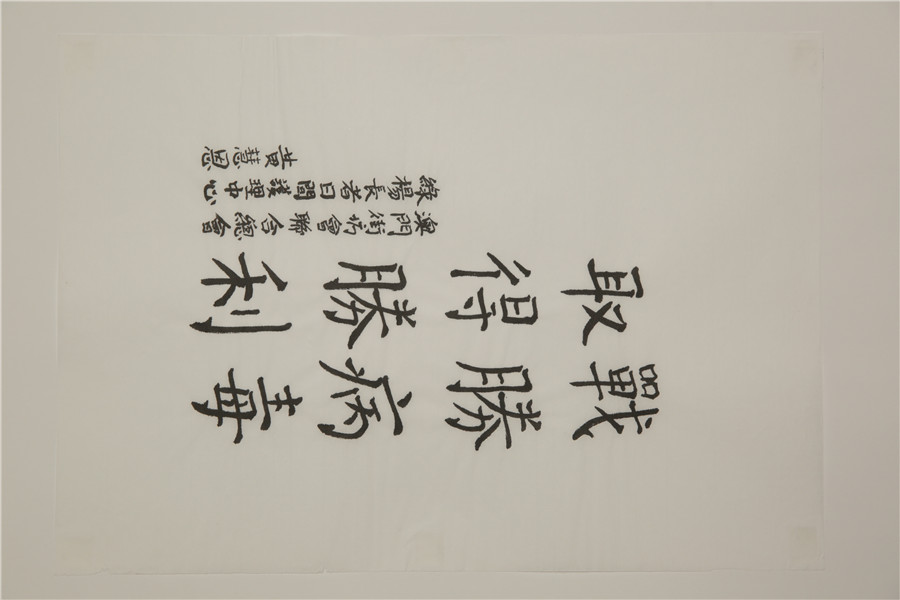 戰勝病毒
取得勝利
澳門街坊會聯合總會
綠楊長者日間護理中心
黃慧恩